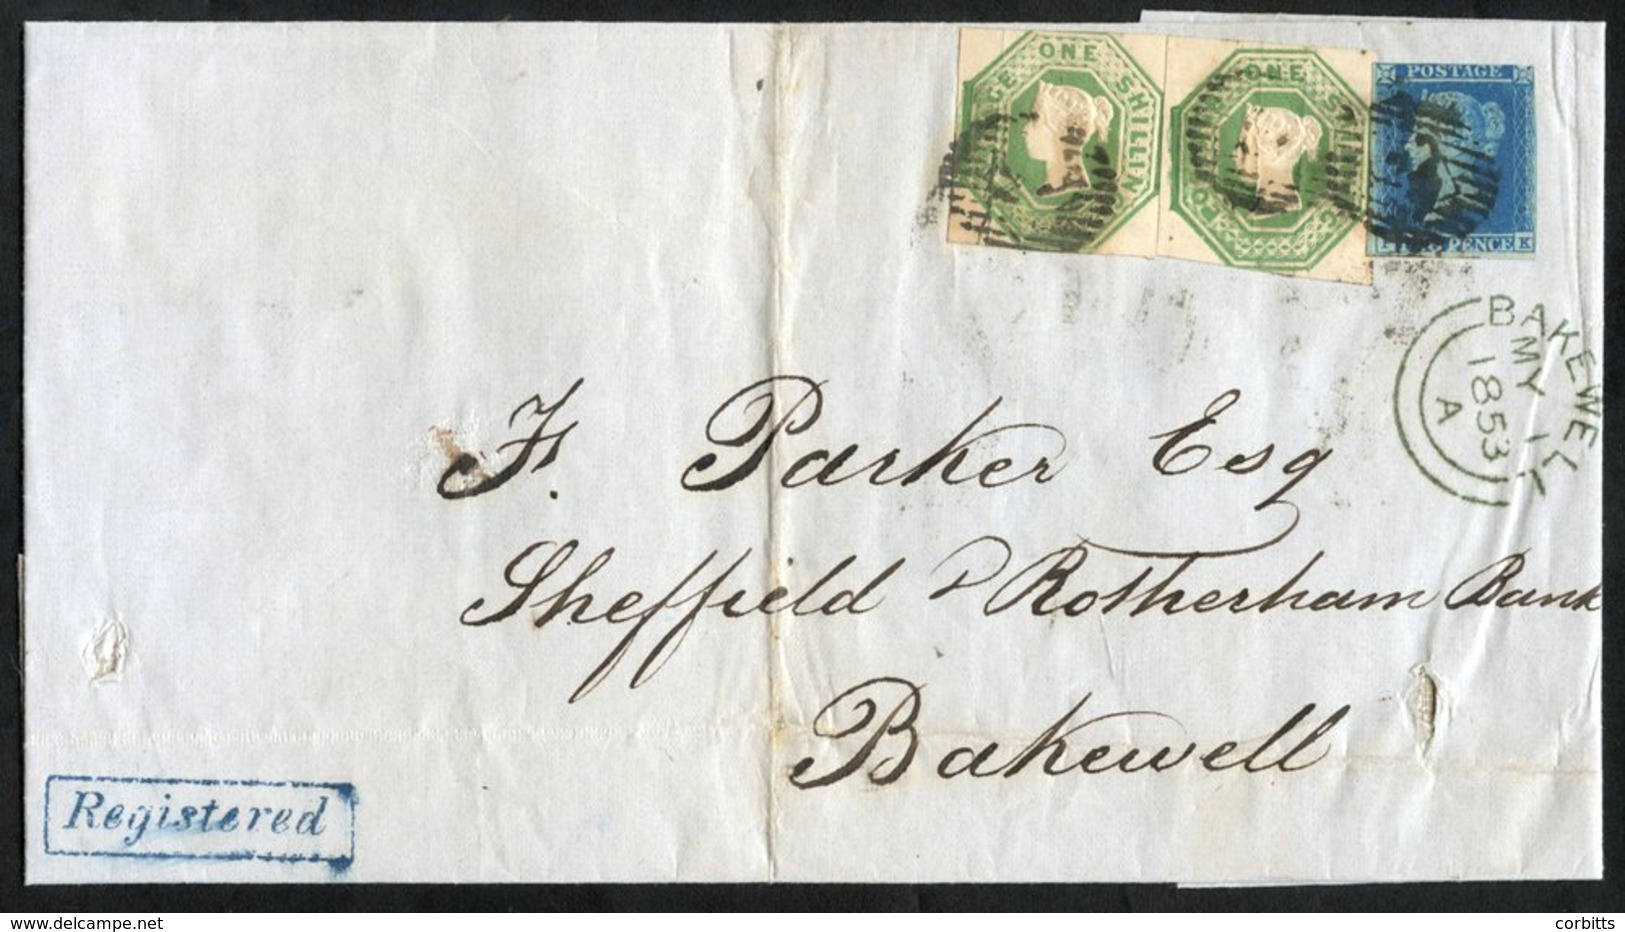 ONE SHILLIN
GE
ONE S
POSTAGE
PENCE
K
BAKEWELL
MY 1
1853
A
F. Parker Esq
Sheffield & Rotherham Bank
Bakewell
Registered
delcampe.net
corbitts